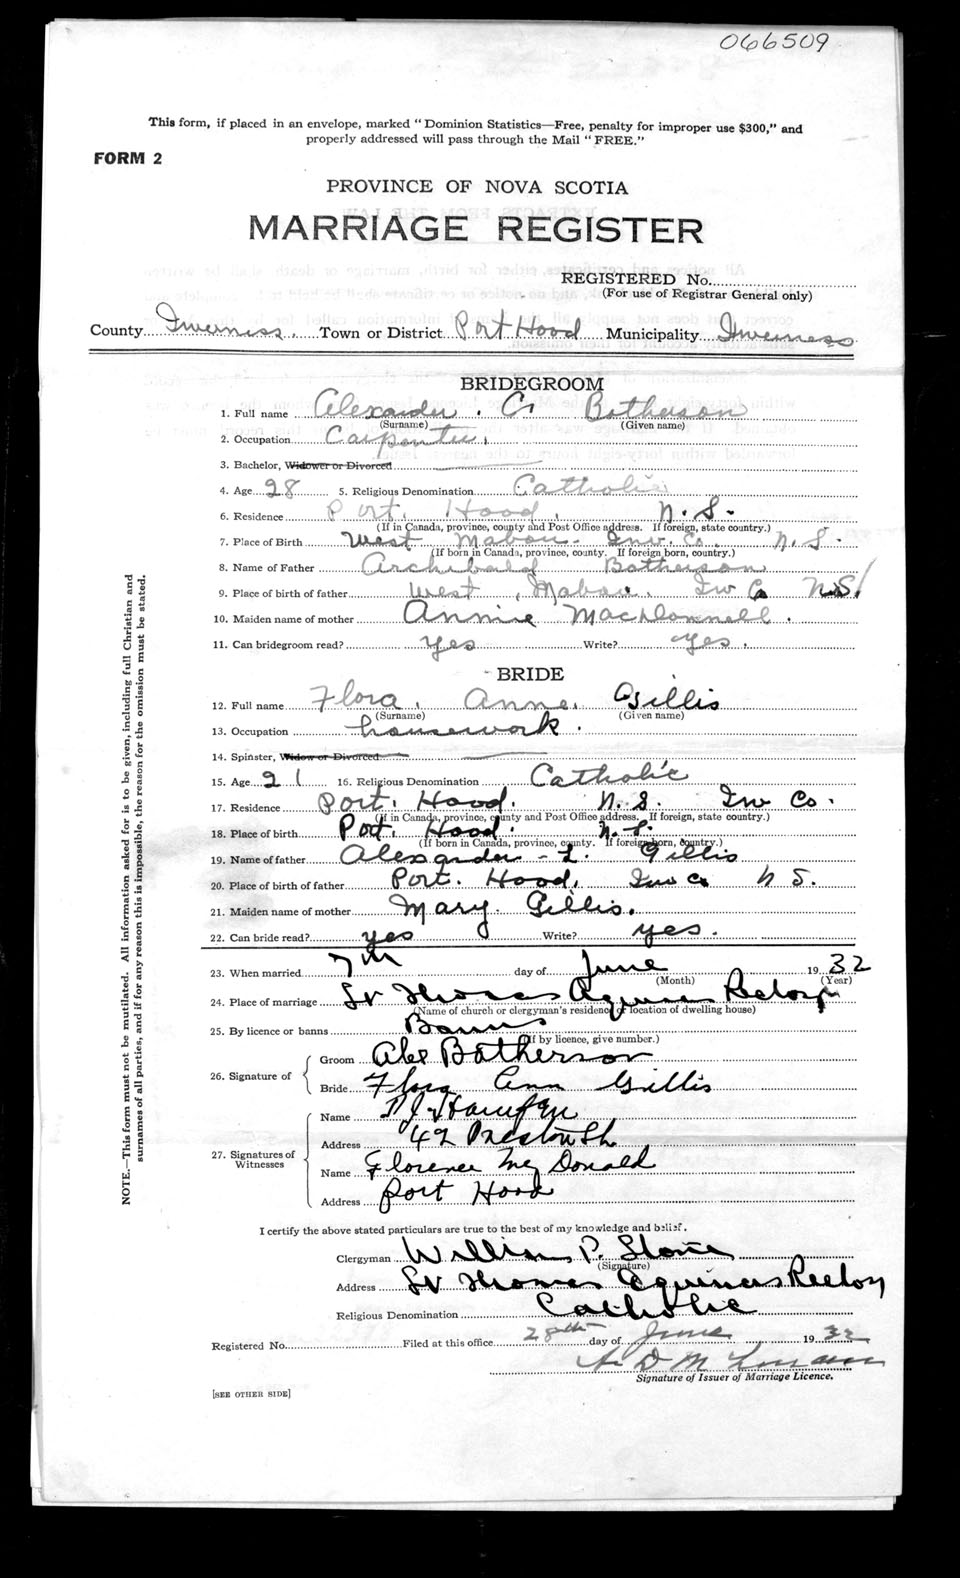 066509
This form, if placed in an envelope, marked "Dominion Statistics—Free, penalty for improper use $300," and
properly addressed will pass through the Mail "FREE."
FORM 2
PROVINCE OF NOVA SCOTIA
MARRIAGE REGISTER
REGISTERED No.
(For use of Registrar General only)
County Inverness Town or District Port Hood Municipality Inverness
BRIDEGROOM
1. Full name Alexander . Batherson
(Surname) (Given name)
2. Occupation Carpenter
3. Bachelor, Widower or Divorced
4. Age 28 5. Religious Denomination Catholic
6. Residence Port. Hood. N. S.
(If in Canada, province, county and Post Office address. If foreign, state country.)
7. Place of Birth West Mabou. Inv. Co. N. S.
(If born in Canada, province, county. If foreign born, country.)
8. Name of Father Archibald Batherson
9. Place of birth of father West, Mabou. Inv Co N.S.
10. Maiden name of mother Annie MacDonnell.
11. Can bridegroom read? Yes Write? Yes.
BRIDE
12. Full name Flora. Anne. Gillis
(Surname) (Given name)
13. Occupation housework.
14. Spinster, Widow or Divorced
15. Age 21 16. Religious Denomination Catholic
17. Residence Port. Hood. N. S. Inv Co.
(If in Canada, province, county and Post Office address. If foreign, state country.)
18. Place of birth Port. Hood. N. S.
(If born in Canada, province, county. If foreign born, country.)
19. Name of father Alexander - Gillis
20. Place of birth of father Port. Hood. Inv Co N S.
21. Maiden name of mother Mary. Gillis.
22. Can bride read? yes Write? yes.
23. When married 7th day of June 1932
(Month) (Year)
24. Place of marriage St Thomas Aquinas Rectory
(Name of church or clergyman's residence or location of dwelling house)
25. By licence or banns Banns
(If by licence, give number.)
26. Signature of
Groom Alex Batherson
Bride Flora Ann Gillis
27. Signatures of Witnesses
Name
Address 42 Preston St.
Name Florence McDonald
Address Port Hood
I certify the above stated particulars are true to the best of my knowledge and belief.
Clergyman William P.
(Signature)
Address St Thomas Aquinas Rectory
Religious Denomination Catholic
Registered No. Filed at this office 28th day of June 1932
Signature of Issuer of Marriage Licence.
[SEE OTHER SIDE]
NOTE.—This form must not be mutilated. All information asked for is to be given, including full Christian and
surnames of all parties, and if for any reason this is impossible, the reason for the omission must be stated.